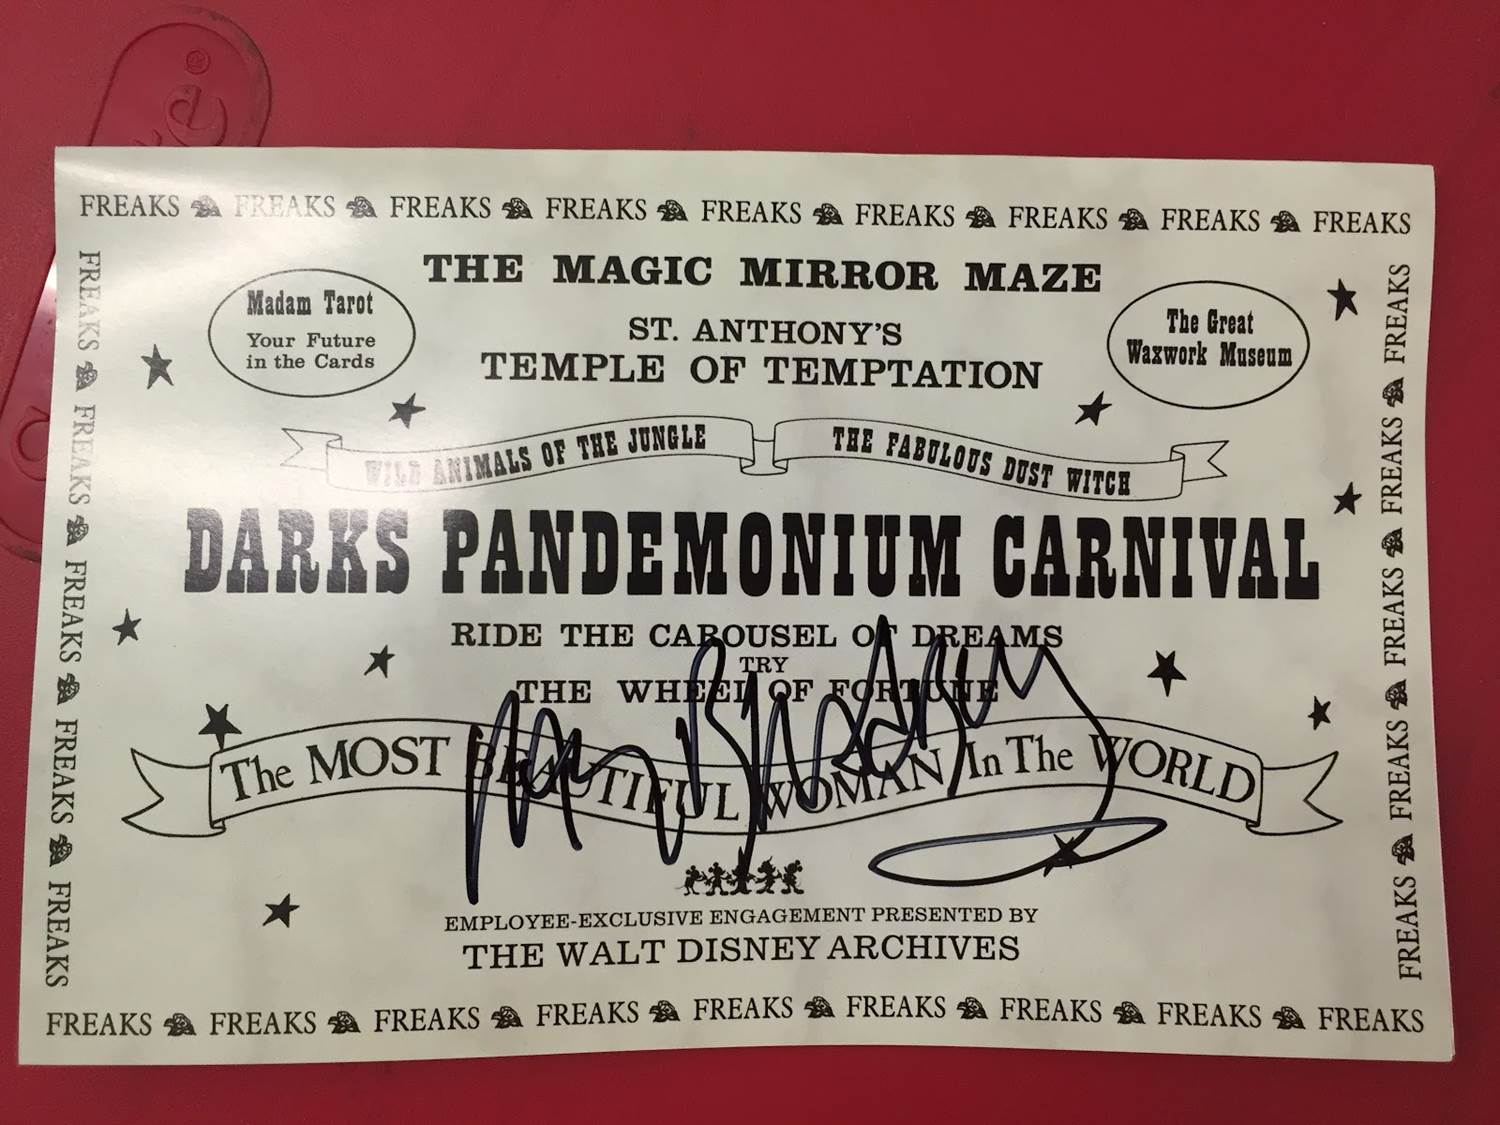 FREAKS FREAKS FREAKS FREAKS FREAKS FREAKS FREAKS FREAKS FREAKS
THE MAGIC MIRROR MAZE
Madam Tarot
Your Future
in the Cards
ST. ANTHONY'S
TEMPLE OF TEMPTATION
The Great
Waxwork Museum
WILD ANIMALS OF THE JUNGLE
THE FABULOUS DUST WITCH
DARKS PANDEMONIUM CARNIVAL
RIDE THE CAROUSEL OF DREAMS
TRY
THE WHEEL OF FORTUNE
The MOST BEAUTIFUL WOMAN In The WORLD
Ray Bradbury
EMPLOYEE-EXCLUSIVE ENGAGEMENT PRESENTED BY
THE WALT DISNEY ARCHIVES
FREAKS FREAKS FREAKS FREAKS FREAKS
FREAKS FREAKS FREAKS FREAKS FREAKS
FREAKS FREAKS FREAKS FREAKS FREAKS FREAKS FREAKS FREAKS FREAKS